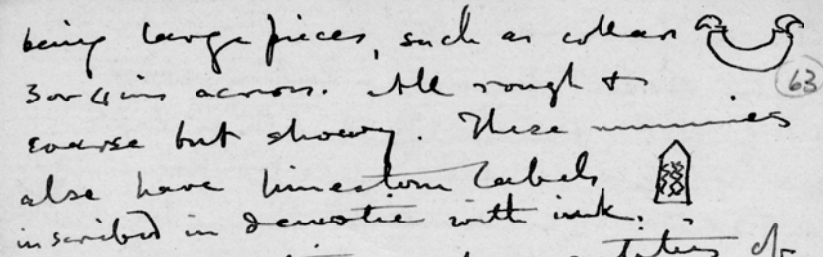 being large pieces, such as collars
3 or 4 ins across. All rough &
63
coarse but showy. These mummies
also have limestone labels
inscribed in demotic with ink.
of